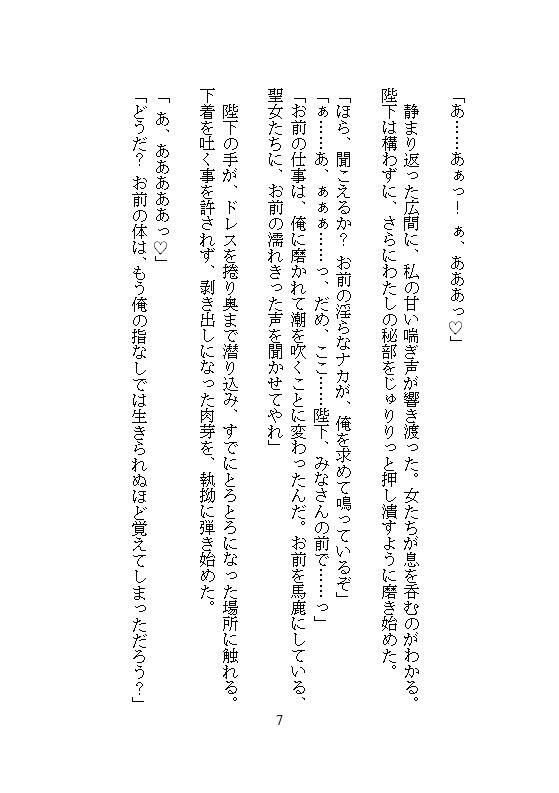 「あ……あぁっ！ ぁ、あああっ♡」
　静まり返った広間に、私の甘い喘ぎ声が響き渡った。女たちが息を呑むのがわかる。
陛下は構わずに、さらにわたしの秘部をじゅりりっと押し潰すように磨き始めた。
「ほら、聞こえるか？ お前の淫らなナカが、俺を求めて鳴っているぞ」
「ぁ……あ、ぁぁぁ……っ、だめ、ここ……陛下、みなさんの前で……っ」
「お前の仕事は、俺に磨かれて潮を吹くことに変わったんだ。お前を馬鹿にしている、
聖女たちに、お前の濡れきった声を聞かせてやれ」
　陛下の手が、ドレスを捲り奥まで潜り込み、すでにとろとろになった場所に触れる。
下着を吐く事を許されず、剥き出しになった肉芽を、執拗に弾き始めた。
「 あ、あああああっ♡」
「どうだ？ お前の体は、もう俺の指なしでは生きられぬほど覚えてしまっただろう？」
7